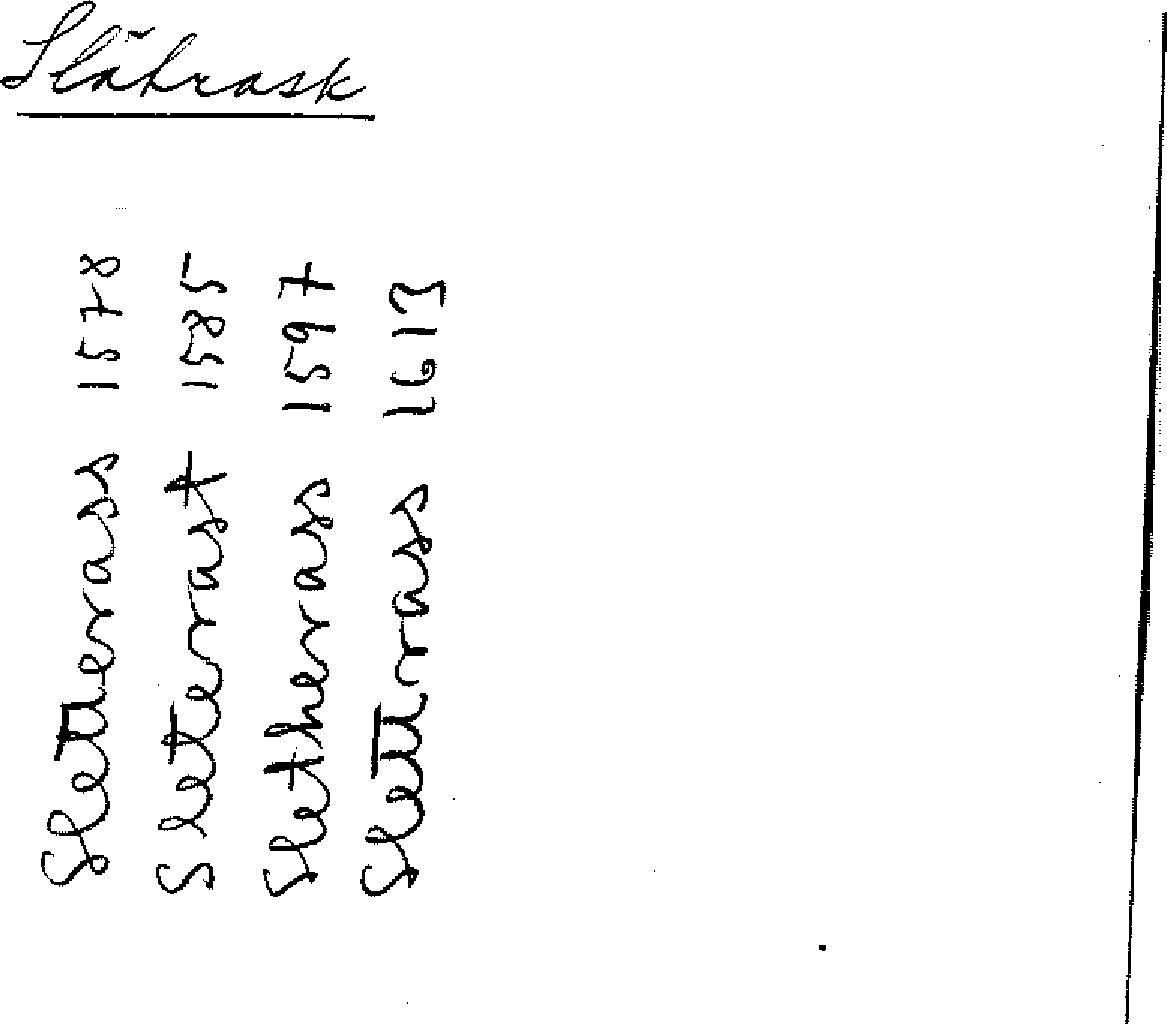 Slätrask
Sletterass 1578
Sleterast 1585
Sletherass 1597
Slettrass 1613